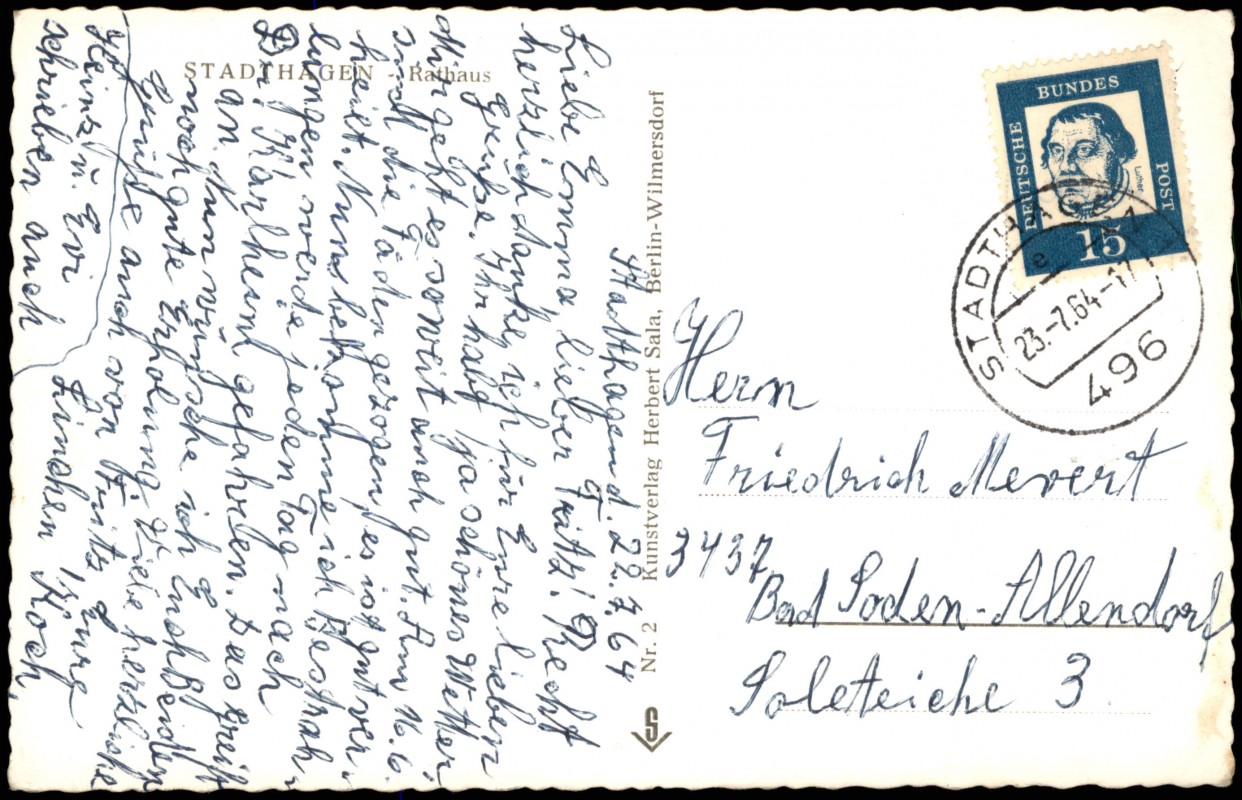 STADTHAGEN - Rathaus
Stadthagen d. 22.7.64
Liebe Emma lieber Fritz! Recht
herzlich danke ich für Eure lieben
Grüße. Ihr habt ja schönes Wetter
geht es soweit auch gut. Am 16.6.
sind die Fäden gezogen, es ist gut ver-
heilt. Nun bekomme ich Bestrah-
lungen werde jeden Tag nach
Karlheinz gefahren. Das greift
an. Nun wünsche ich Euch beiden
noch gute Erholung. Viele herzliche
Grüße auch von Fritz Eure
Linchen Koch,
Heinz u. Evi
schrieben auch
Nr. 2 Kunstverlag Herbert Sala, Berlin-Wilmersdorf
S
DEUTSCHE
BUNDES
POST
Luther
15
STADTHAGEN
e
23.-7.64-17
496
Herrn
Friedrich Mevert
3437
Bad Soden-Allendorf
Soleteiche 3